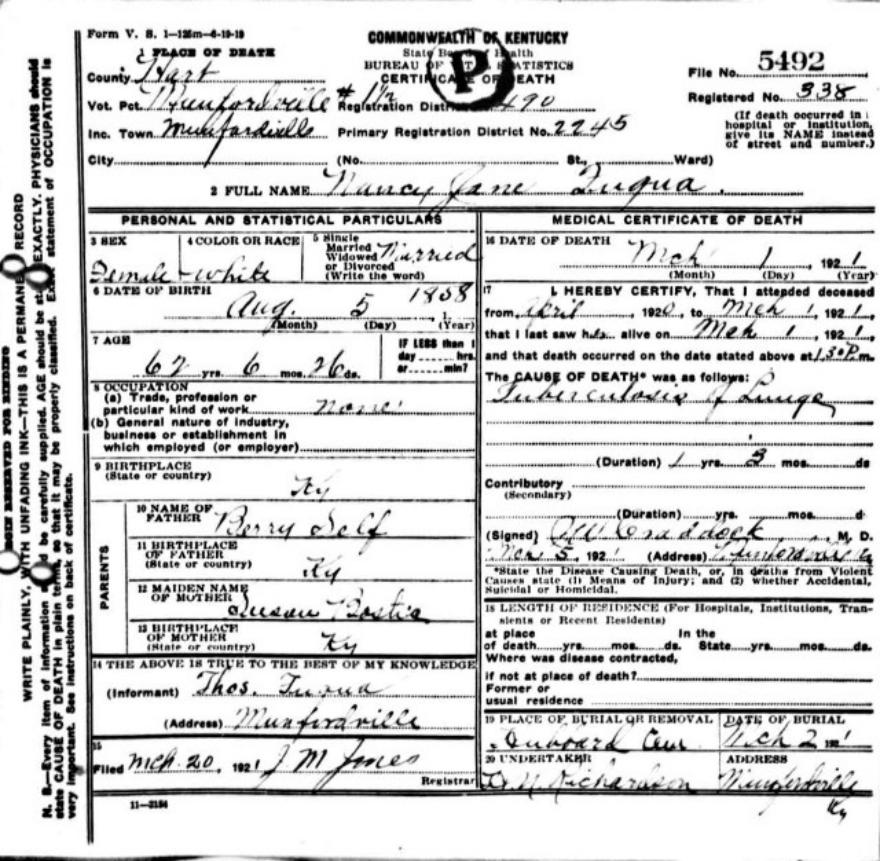 Form V. S. 1—125m—6-19-19
COMMONWEALTH OF KENTUCKY
State Board of Health
BUREAU OF VITAL STATISTICS
CERTIFICATE OF DEATH
P
File No. 5492
Registered No. 338
(If death occurred in
hospital or institution,
give its NAME instead
of street and number.)
1 PLACE OF DEATH
County Hart
Vot. Pct. Munfordville # 1½ Registration District 490
Inc. Town Munfordville Primary Registration District No. 2245
City (No. St., Ward)
2 FULL NAME Nancy Jane Fuqua
PERSONAL AND STATISTICAL PARTICULARS
3 SEX Female
4 COLOR OR RACE White
5 Single
Married
Widowed
or Divorced
(Write the word) Married
6 DATE OF BIRTH
Aug. 5 1858
(Month) (Day) (Year)
7 AGE
62 yrs. 6 mos. 26 ds.
IF LESS than 1
day hrs.
or min?
8 OCCUPATION
(a) Trade, profession or
particular kind of work none
(b) General nature of industry,
business or establishment in
which employed (or employer)
9 BIRTHPLACE
(State or country)
Ky
PARENTS
10 NAME OF
FATHER Berry Self
11 BIRTHPLACE
OF FATHER
(State or country) Ky
12 MAIDEN NAME
OF MOTHER Susan Bostic
13 BIRTHPLACE
OF MOTHER
(State or country) Ky
14 THE ABOVE IS TRUE TO THE BEST OF MY KNOWLEDGE
(Informant) Thos. Fuqua
(Address) Munfordville
15
Filed Mch. 20, 1921 J M Jones
Registrar
11—3154
MEDICAL CERTIFICATE OF DEATH
16 DATE OF DEATH
Mch 1, 1921
(Month) (Day) (Year)
17 I HEREBY CERTIFY, That I attended deceased
from April 1920, to Mch 1, 1921,
that I last saw her alive on Mch 1, 1921
and that death occurred on the date stated above at 1,30 P.m.
The CAUSE OF DEATH* was as follows:
Tuberculosis of Lungs
(Duration) 1 yrs. 3 mos. ds
Contributory
(Secondary)
(Duration) yrs. mos. d
(Signed) Craddock M. D.
Mch 5, 1921 (Address) Munfordville Ky
*State the Disease Causing Death, or, in deaths from Violent
Causes state (1) Means of Injury; and (2) whether Accidental,
Suicidal or Homicidal.
18 LENGTH OF RESIDENCE (For Hospitals, Institutions, Tran-
sients or Recent Residents)
at place In the
of death yrs. mos. ds. State yrs. mos. ds.
Where was disease contracted,
if not at place of death?
Former or
usual residence
19 PLACE OF BURIAL OR REMOVAL
Cem
DATE OF BURIAL
Mch 2 1921
20 UNDERTAKER
Richardson
ADDRESS
Munfordville
Ky
MARGIN RESERVED FOR BINDING
WRITE PLAINLY, WITH UNFADING INK—THIS IS A PERMANENT RECORD
N. B.—Every item of information should be carefully supplied. AGE should be stated EXACTLY. PHYSICIANS should
state CAUSE OF DEATH in plain terms, so that it may be properly classified. Exact statement of OCCUPATION is
very important. See instructions on back of certificate.